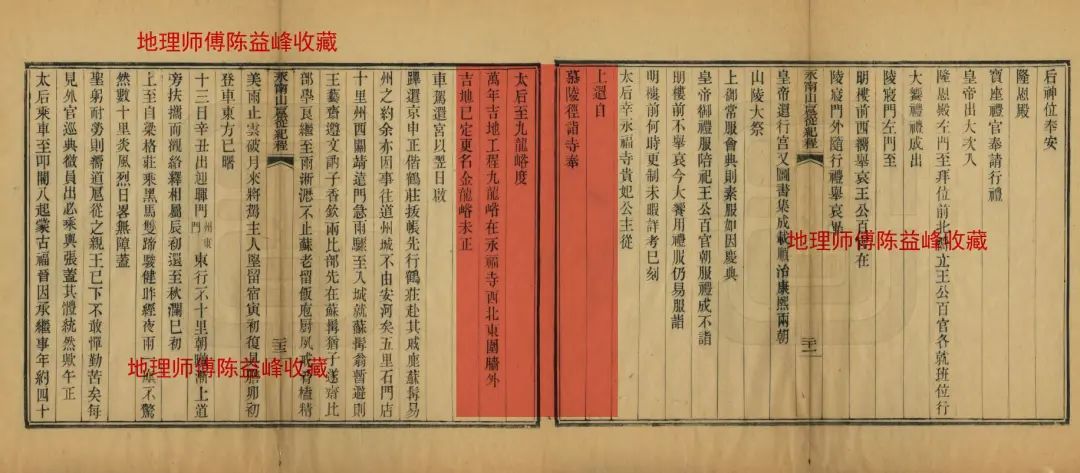 地理师傅陈益峰收藏
后神位奉安
隆恩殿
寶座禮官奉請行禮
皇帝出大次入
隆恩殿左門至拜位前北立王公百官各就班位行
大饗禮禮成出
陵寢門左門至
明樓前西嚮舉哀王公百官在
陵寢門外隨行禮舉哀
永甯山扈從紀程
皇帝還行宮又圖書集成載順治康熙兩朝
山陵大祭
上御常服會典則素服如因慶典
皇帝御禮服陪祀王公百官朝服禮成不詣
明樓前不舉哀今大饗用禮服仍易服詣
明樓前何時更制未暇詳考巳刻
太后幸永福寺貴妃公主從
上還自
慕陵徑詣寺奉
地理师傅陈益峰收藏
太后至九龍峪度
萬年吉地工程九龍峪在永福寺西北東圍牆外
吉地已定更名金龍峪未正
車駕還宮以翌日啟
蹕還京申正偕鶴莊拔帳先行鶴莊赴其戚鹿蘇髯易
州之約余亦因事往道州城不由安河矣五里石門店
十里州西關靖遠門急雨驟至入城就蘇髯翁暫避則
王藝齋遵文酌子香欽兩比部先在蘇髯猶子遂齋比
部學良繼至雨淅瀝不止蘇老留飯庖厨夙戒肴精
美雨止雲破月來將駕主人堅留宿寅初復具膳卯初
登車東方已曙
永甯山扈從紀程
十三日辛丑出迎門州東門東行不十里朝漸上道
旁扶攜而觀絡繹相屬辰初還至秋瀾巳初
上至自梁格莊乘黑馬雙蹄驟健昨經夜雨一塵不驚
然數十里炎風烈日畧無障蓋
聖躬耐勞則嚮道扈從之親王已下不敢憚勤苦矣每
見外官巡典微員出必乘輿張蓋其體統然歟午正
太后乘車至叩閽人起蒙古福晉因承繼事年約四十
地理师傅陈益峰收藏